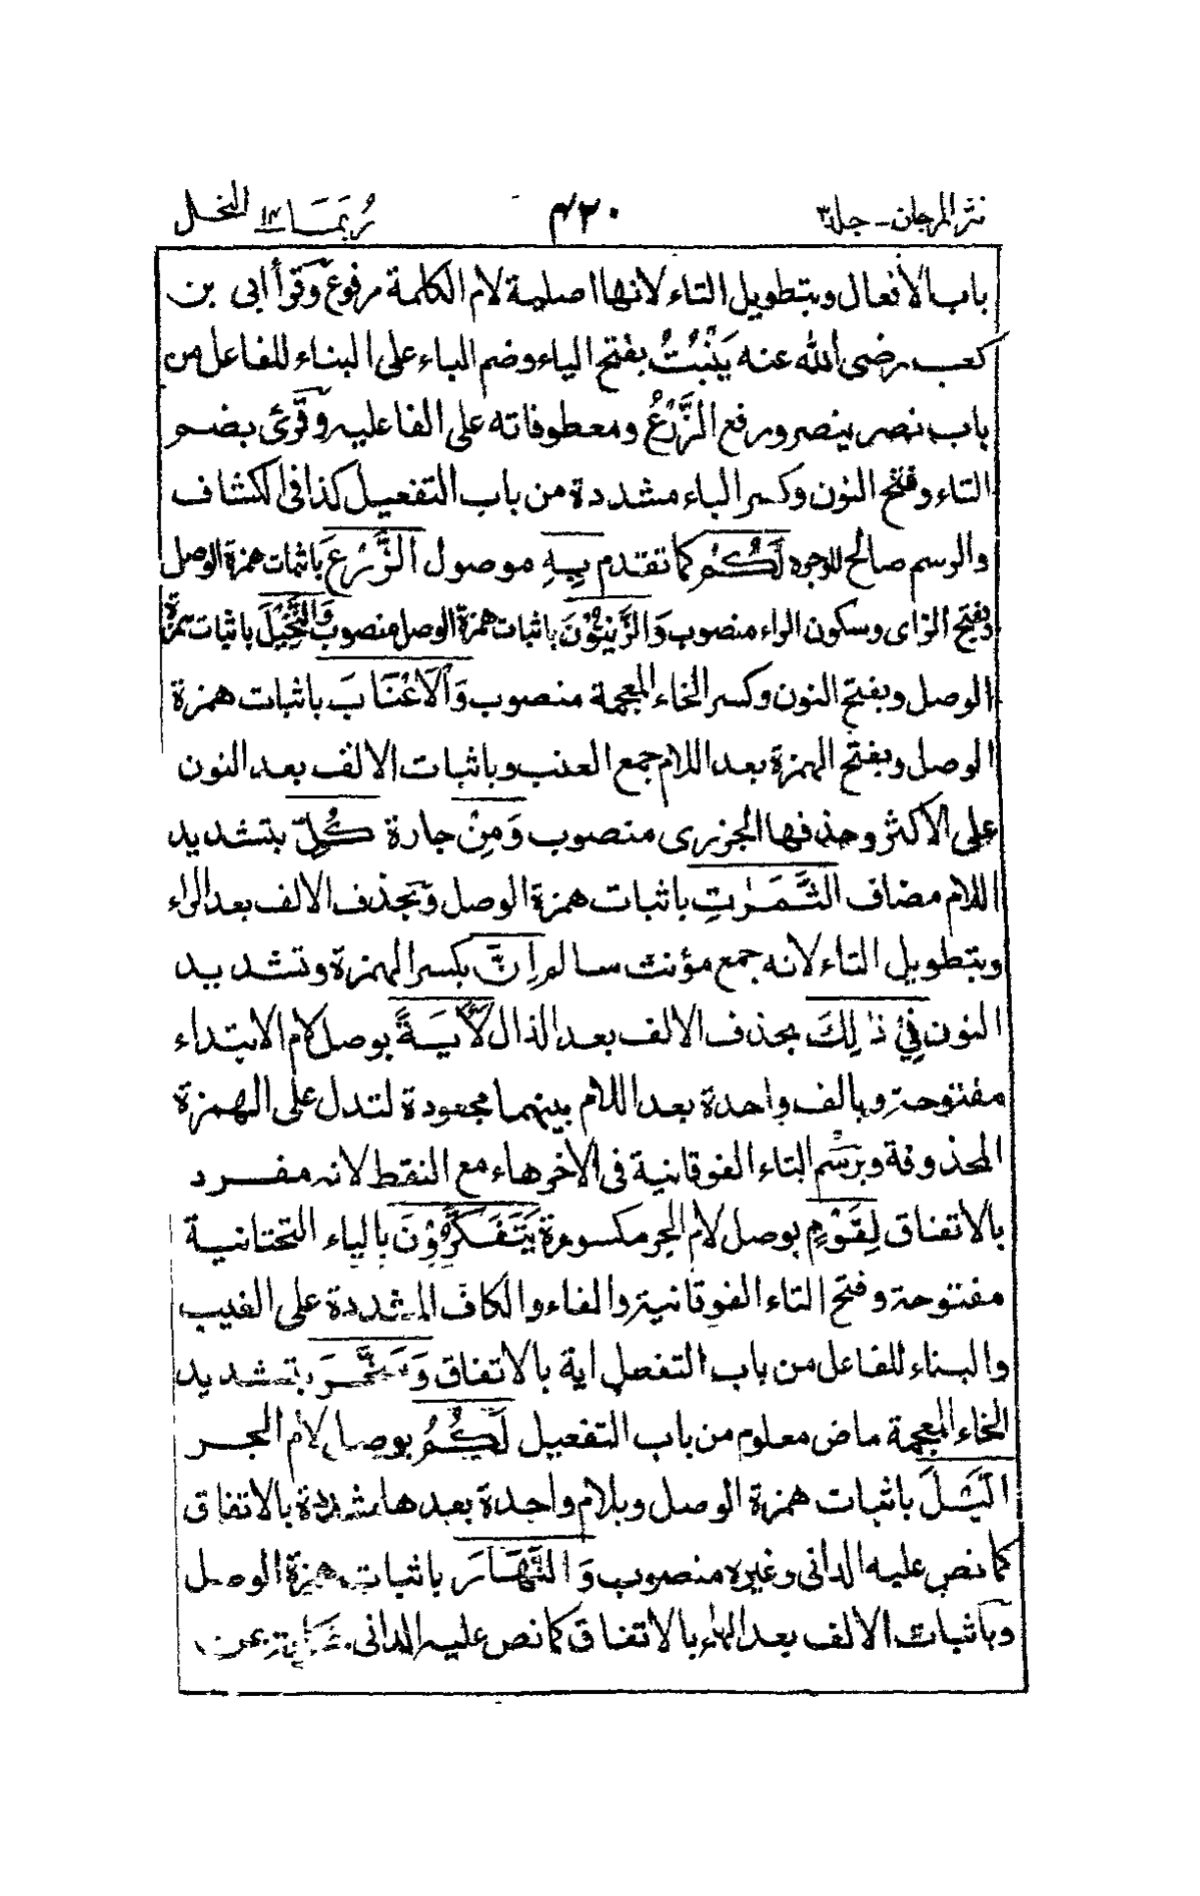 نثر المرجان ـ جلد ٣ ٤٢٠ رُبَمَا ١٤ النحل
باب الافعال وبتطويل التاء لانها اصلية لام الكلمة مرفوع وقرأ ابى بن
كعب رضى الله عنه يَنْبُتُ بفتح الياء وضم الباء على البناء للفاعل من
باب نصر ينصر ورفع الزَّرْعُ ومعطوفاته على الفاعليه وقرئ بضم
التاء وفتح النون وكسر الباء مشددة من باب التفعيل كذا فى الكشاف
والرسم صالح للوجوه لَكُمْ كما تقدم بِهِ موصول الزَّرْعَ باثبات همزة الوصل
وبفتح الزاى وسكون الراء منصوب وَالزَّيْتُوْنَ باثبات همزة الوصل منصوب وَالنَّخِيْلَ باثبات همزة
الوصل وبفتح النون وكسر الخاء المعجمة منصوب وَالْاَعْنَابَ باثبات همزة
الوصل وبفتح الهمزة بعد اللام جمع العنب وباثبات الالف بعد النون
على الاكثر وحذفها الجزرى منصوب وَمِنْ جارة كُلِّ بتشديد
اللام مضاف الثَّمَرٰتِ باثبات همزة الوصل وبحذف الالف بعد الراء
وبتطويل التاء لانه جمع مؤنث سالم اِنَّ بكسر الهمزة وتشديد
النون فِيْ ذٰلِكَ بحذف الالف بعد الذال لَاٰيَةً بوصل لام الابتداء
مفتوحة وبالف واحدة بعد اللام بينهما مجعودة لتدل على الهمزة
المحذوفة وبرسم التاء الفوقانية فى الاخر هاء مع النقط لانه مفرد
بالاتفاق لِقَوْمٍ بوصل لام الجر مكسورة يَتَفَكَّرُوْنَ بالياء التحتانية
مفتوحة وفتح التاء الفوقانية والفاء والكاف المشددة على الغيب
والبناء للفاعل من باب التفعل اية بالاتفاق وَسَخَّرَ بتشديد
الخاء المعجمة ماض معلوم من باب التفعيل لَكُمُ بوصل لام الجر
الَّيْلَ باثبات همزة الوصل وبلام واحدة بعدها مشددة بالاتفاق
كما نص عليه الدانى وغيره منصوب وَالنَّهَارَ باثبات همزة الوصل
وباثبات الالف بعد الهاء بالاتفاق كما نص عليه الدانى